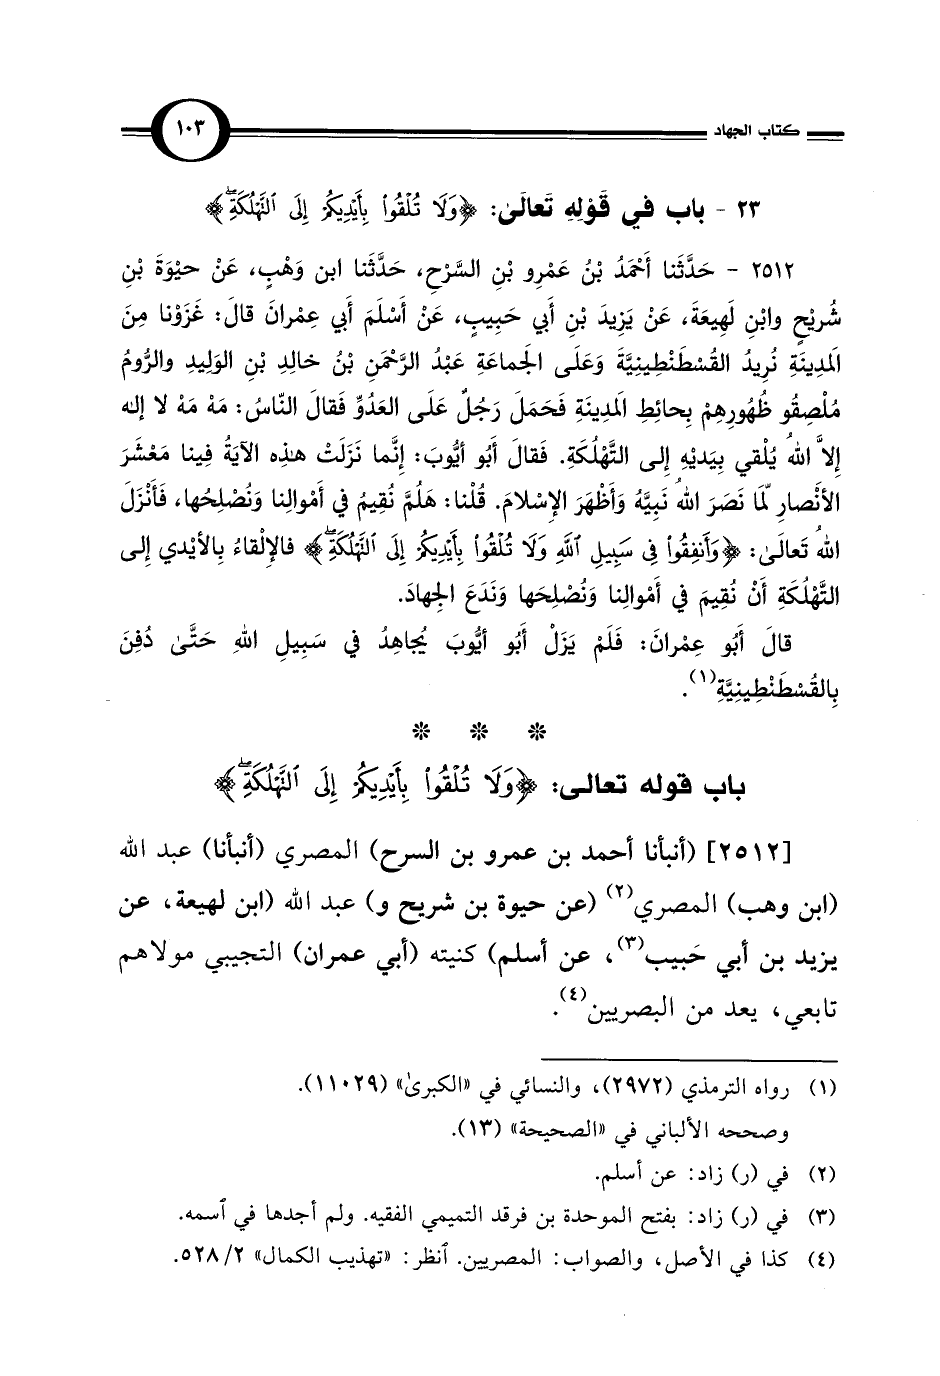 كتاب الجهاد
١٠٣
٢٣ - باب في قَوْلِهِ تَعالَىٰ: ﴿وَلَا تُلْقُوا۟ بِأَيْدِيكُمْ إِلَى ٱلتَّهْلُكَةِ﴾
٢٥١٢ - حَدَّثَنا أَحْمَدُ بْنُ عَمْرِو بْنِ السَّرْحِ، حَدَّثَنا ابن وَهْبٍ، عَنْ حيْوَةَ بْنِ
شُرَيْحٍ وابْنِ لَهِيعَةَ، عَنْ يَزِيدَ بْنِ أَبي حَبِيبٍ، عَنْ أَسْلَمَ أَبي عِمْرانَ قالَ: غَزَوْنا مِنَ
المَدِينَةِ نُرِيدُ القُسْطَنْطِينِيَّةَ وَعَلَى الجَماعَةِ عَبْدُ الرَّحْمَنِ بْنُ خالِدِ بْنِ الوَلِيدِ والرُّومُ
مُلْصِقُو ظُهُورِهِمْ بِحائِطِ المَدِينَةِ فَحَمَلَ رَجُلٌ عَلَى العَدُوِّ فَقالَ النّاسُ: مَهْ مَهْ لا إله
إلاَّ اللهُ يُلْقي بِيَدَيْهِ إِلى التَّهْلُكَةِ. فَقالَ أَبُو أيُّوبَ: إِنَّما نَزَلَتْ هذِه الآيَةُ فِينا مَعْشَرَ
الأَنْصارِ لَمّا نَصَرَ اللهُ نَبِيَّهُ وَأَظْهَرَ الإِسْلامَ. قُلْنا: هَلُمَّ نُقِيمُ في أَمْوالِنا وَنُصْلِحُها، فَأَنْزَلَ
اللهُ تَعالَىٰ: ﴿وَأَنفِقُوا۟ فِى سَبِيلِ ٱللَّهِ وَلَا تُلْقُوا۟ بِأَيْدِيكُمْ إِلَى ٱلتَّهْلُكَةِ﴾ فالإِلْقاءُ بِالأَيْدي إِلى
التَّهْلُكَةِ أَنْ نُقِيمَ في أَمْوالِنا وَنُصْلِحَها وَنَدَعَ الجِهادَ.
قالَ أَبُو عِمْرانَ: فَلَمْ يَزَلْ أَبُو أيُّوبَ يُجاهِدُ في سَبِيلِ اللهِ حَتَّىٰ دُفِنَ
بِالقُسْطَنْطِينِيَّةِ(١).
* * *
باب قوله تعالى: ﴿وَلَا تُلْقُوا۟ بِأَيْدِيكُمْ إِلَى ٱلتَّهْلُكَةِ﴾
[٢٥١٢] (أنبأنا أحمد بن عمرو بن السرح) المصري (أنبأنا) عبد الله
(ابن وهب) المصري(٢) (عن حيوة بن شريح و) عبد الله (ابن لهيعة، عن
يزيد بن أبي حَبيب(٣)، عن أسلم) كنيته (أبي عمران) التجيبي مولاهم
تابعي، يعد من البصريين(٤).
(١) رواه الترمذي (٢٩٧٢)، والنسائي في «الكبرىٰ» (١١٠٢٩).
وصححه الألباني في «الصحيحة» (١٣).
(٢) في (ر) زاد: عن أسلم.
(٣) في (ر) زاد: بفتح الموحدة بن فرقد التميمي الفقيه. ولم أجدها في ٱسمه.
(٤) كذا في الأصل، والصواب: المصريين. ٱنظر: «تهذيب الكمال» ٢/ ٥٢٨.